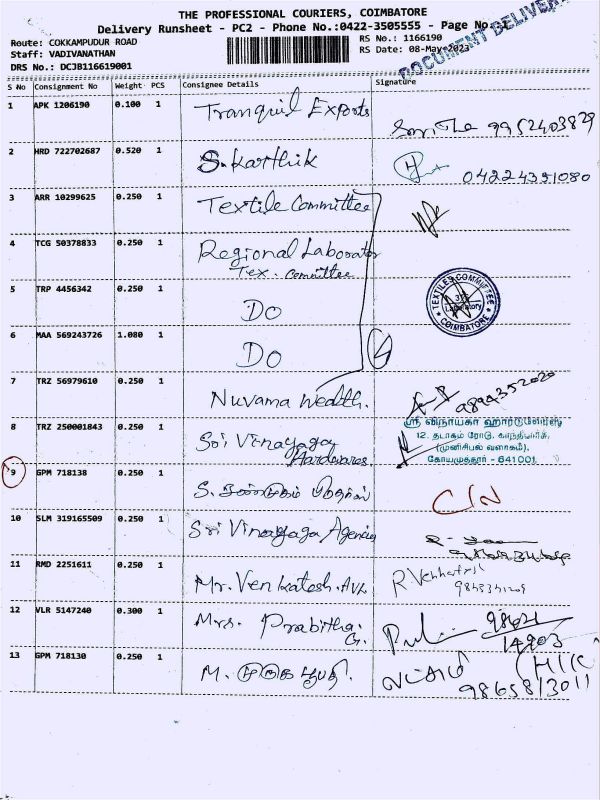 THE PROFESSIONAL COURIERS, COIMBATORE
Delivery Runsheet - PC2 - Phone No.:0422-3505555 - Page No.:
DOCUMENT DELIVERY
Route: COKKAMPUDUR ROAD
Staff: VADIVANATHAN
DRS No.: DCJB116619001
RS No.: 1166190
RS Date: 08-May-2023
S No Consignment No Weight PCS Consignee Details Signature
1 APK 1206190 0.100 1 Tranquil Exports 9952403829
2 HRD 722702687 0.520 1 S. Karthik 04224351080
3 ARR 10299625 0.250 1 Textile Committee
4 TCG 50378833 0.250 1 Regional Laborator
Tex. Committee
5 TRP 4456342 0.250 1 DO
TEXTILES COMMITTEE
Laboratory
COIMBATORE
6 MAA 569243726 1.080 1 DO
4
7 TRZ 56979610 0.250 1 Nuvama Wealth. 9894352020
8 TRZ 250001843 0.250 1 Sri Vinayaga
Hardwares
ஸ்ரீ விநாயகா ஹார்டுவேர்ஸ்
12, தடாகம் ரோடு, காந்திபார்க்,
(முனிசிபல் வளாகம்),
கோயமுத்தூர் - 641001.
9 GPM 718138 0.250 1 S. சண்முகம் C/N
10 SLM 319165509 0.250 1 Sri Vinayaga Agencies
11 RMD 2251611 0.250 1 Mr. Venkatesh. AVL R Venkatesh
12 VLR 5147240 0.300 1 Mrs. Prabitha.
G.
98421
14903
13 GPM 718130 0.250 1 M. முருகபூபதி லட்சுமி (H/K
9865813011